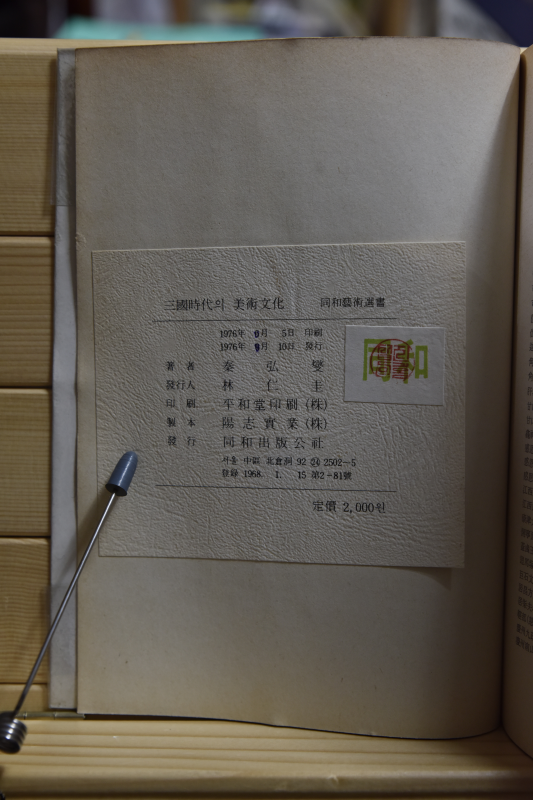 三國時代의 美術文化 同和藝術選書
1976年 9月 5日 印刷
1976年 9月 10日 發行
著者 秦弘燮
發行人 林仁圭
印刷 平和堂印刷(株)
製本 陽志實業(株)
發行 同和出版公社
서울 中區 北倉洞 92 ㉔ 2502-5
登錄 1968. 1. 15 第2-81號
定價 2,000원
同和